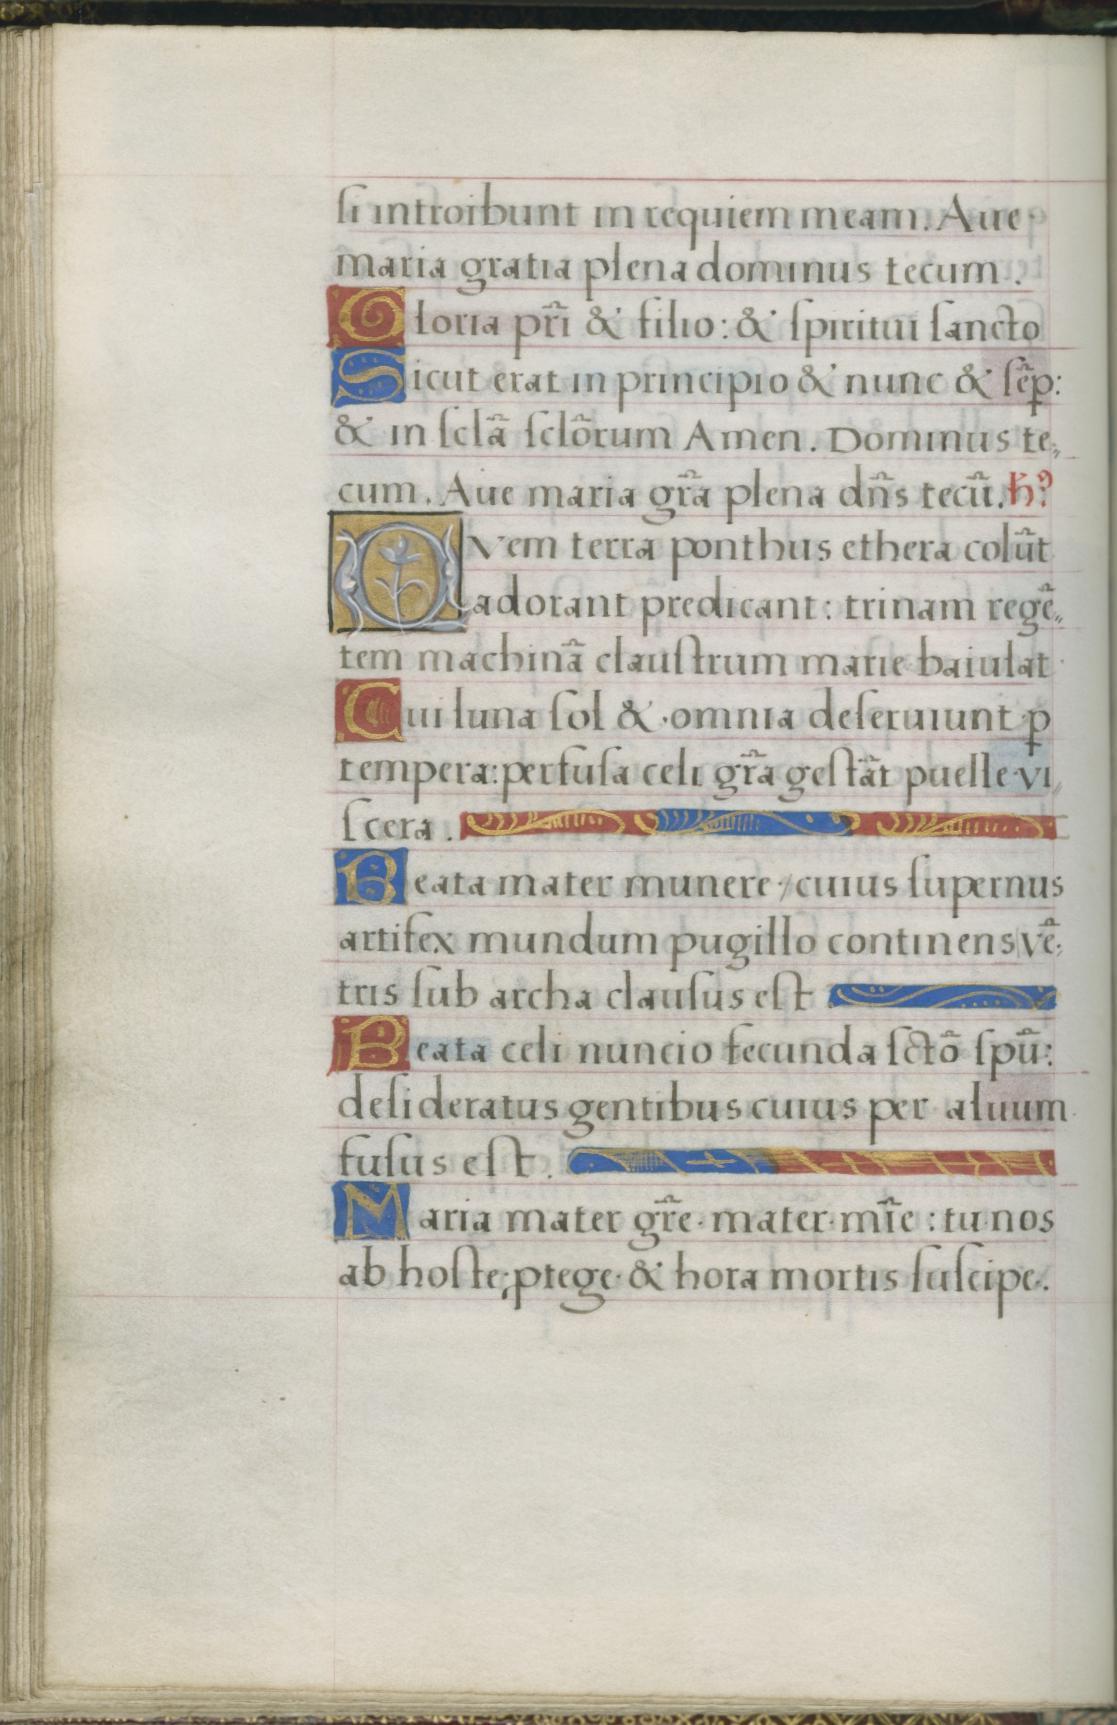 si introibunt in requiem meam. Aue
maria gratia plena dominus tecum.
Gloria pr̃i & filio: & spiritui sancto
Sicut erat in principio & nunc & sẽꝑ:
& in sclã sclõrum Amen. Dominus te„
cum. Aue maria gr̃a plena dñs tecũ. hꝰ?
Qvem terra ponthus ethera colũt
adorant predicant: trinam regẽ„
tem machinã claustrum marie baiulat
Cui luna sol &·omnia deseruiunt ꝑ
tempera:perfusa celi gr̃a gestãt puelle vi„
scera.
Beata mater munere / cuius supernus
artifex mundum pugillo continens vẽ:
tris sub archa clausus est
Beata celi nuncio fecunda sctõ spũ:
desideratus gentibus cuius per aluum
fusus est.
Maria mater gr̃e·mater·mĩe : tu nos
ab hoste ꝓtege·& hora mortis suscipe.